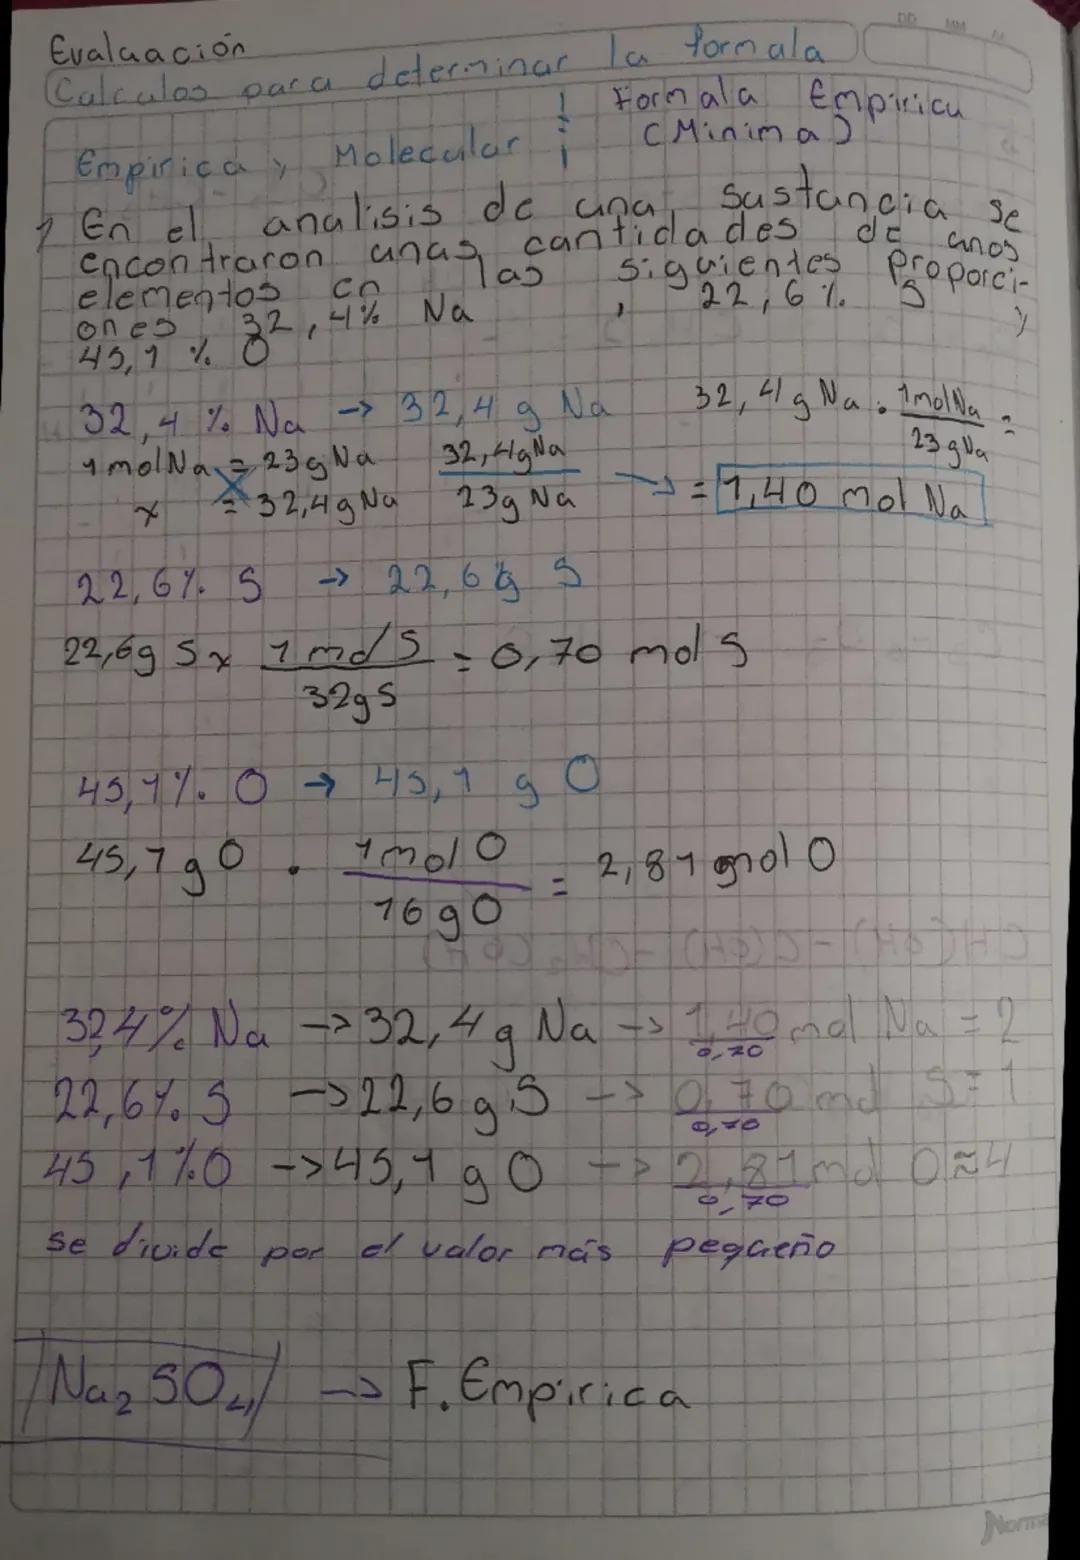 DD MM
Evaluación
Calculos para determinar la formula
Empirica y Molecular : Formula Empirica
(Minima)
1 En el analisis de una sustancia se
encontraron unas cantidades de unos
elementos en las siguientes proporci-
ones 32,4% Na , 22,6% S y
45,1 % O
32,4 % Na → 32,4 g Na 32,4 g Na . 1molNa / 23gNa =
1molNa = 23gNa 32,4gNa / 23g Na → = 1,40 mol Na
x = 32,4gNa
22,6% S → 22,6g S
22,6g S x 1 mol S / 32gS = 0,70 mol S
45,1% O → 45,1 g O
45,1 g O . 1mol O / 16gO = 2,81 mol O
32,4% Na -> 32,4 g Na -> 1,40 mol Na / 0,70 = 2
22,6% S -> 22,6 g S -> 0,70 mol S / 0,70 = 1
45,1% O -> 45,1 g O -> 2,81 mol O / 0,70 ≈ 4
se divide por el valor más pequeño
Na₂SO₄ -> F. Empirica
Norma